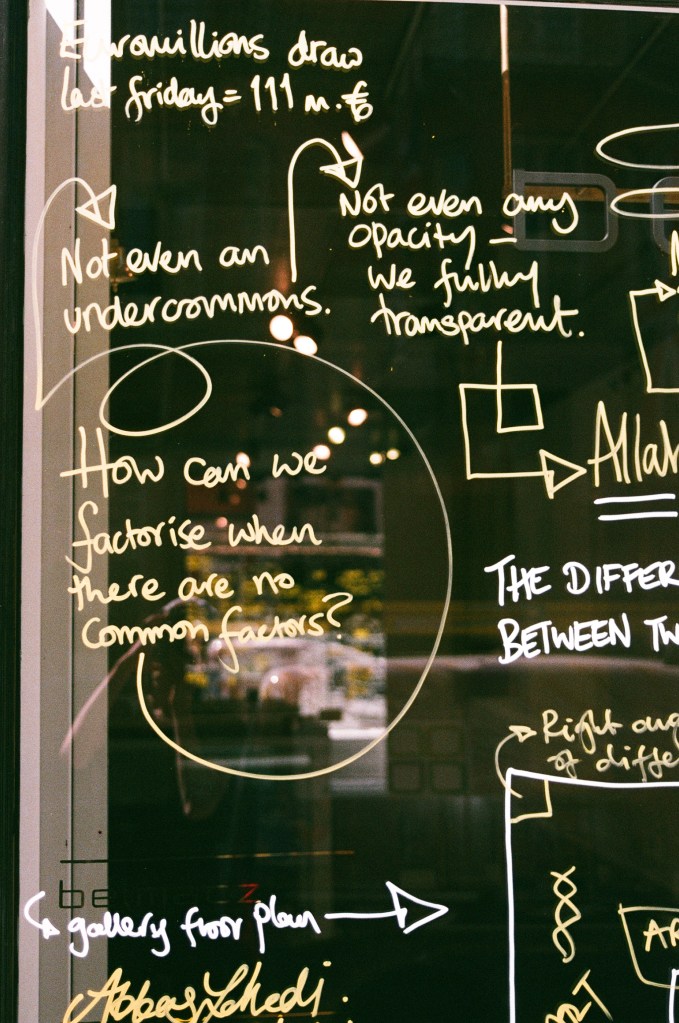 Euromillions draw
last friday = 111 m. €
Not even an
undercommons.
Not even any
opacity –
we fully
transparent.
How can we
factorise when
there are no
common factors?
Allah
THE DIFFER
BETWEEN TW
Right ang
of differ
gallery floor plan
Abbas Zahedi.
AR
ART